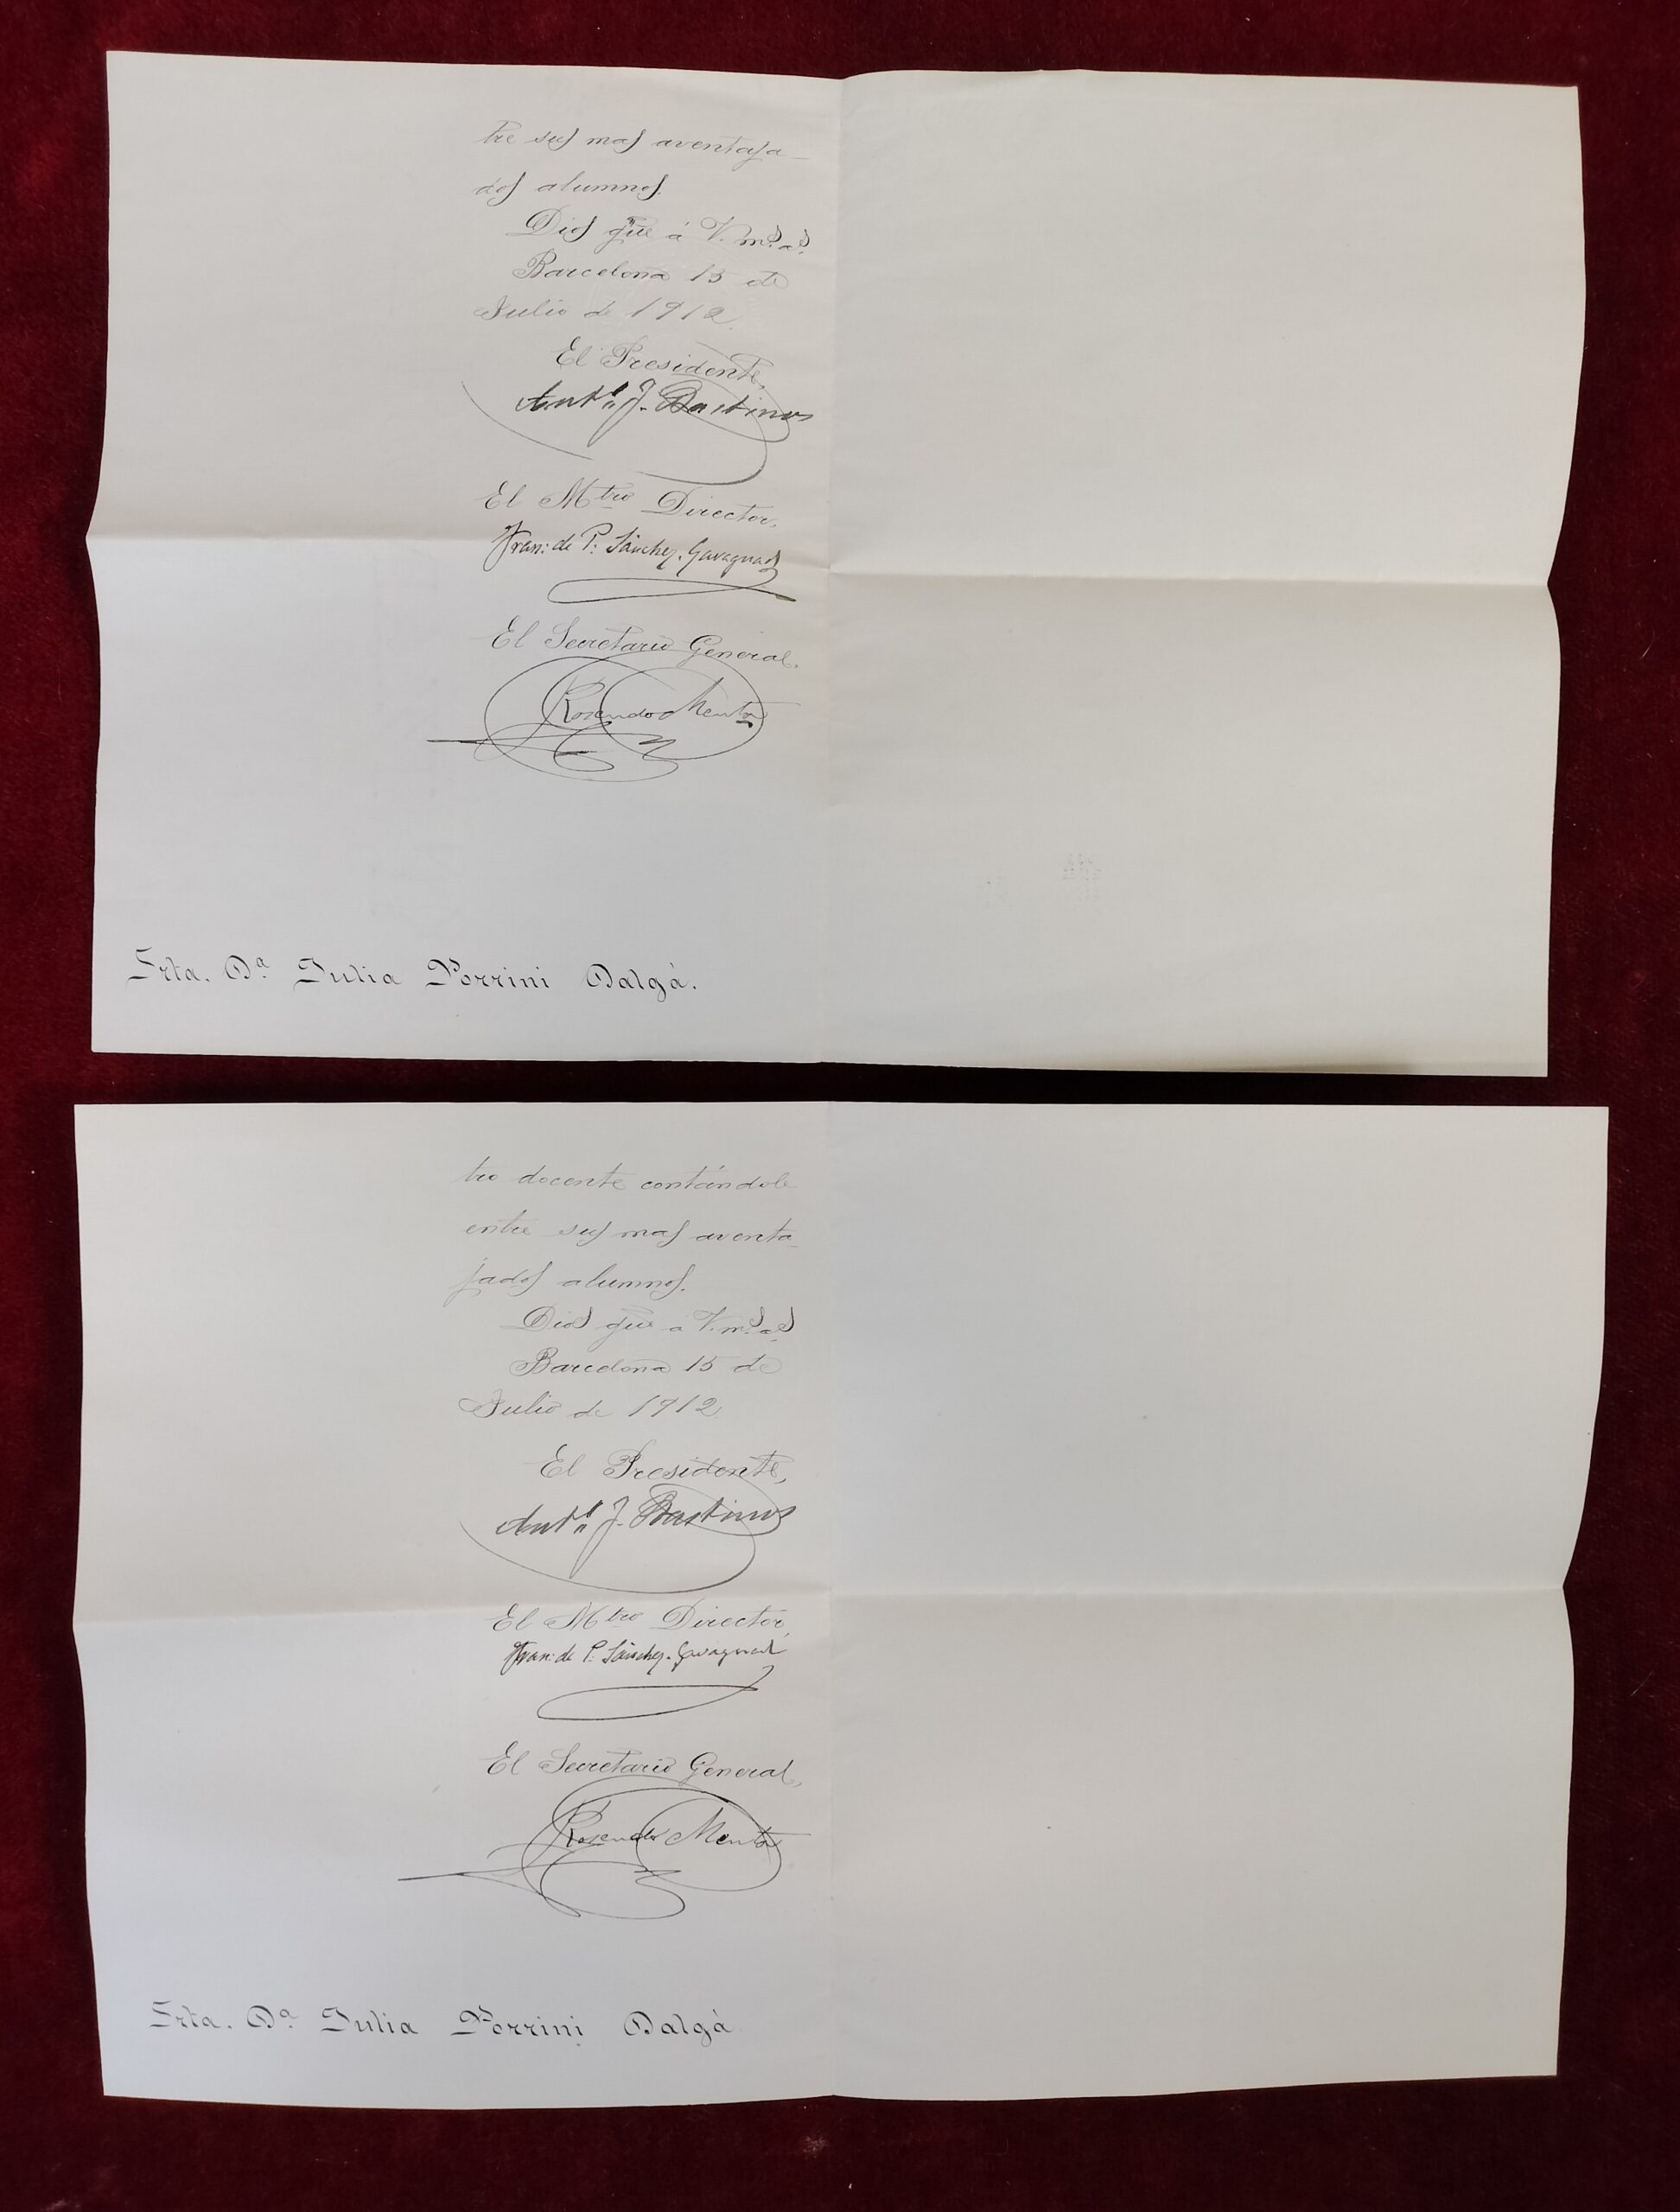 tre sus mas aventaja-
dos alumnos.
Dios gue á V. m.s a.s
Barcelona 15 de
Julio de 1912.
El Presidente,
Ant.º J. Bastinos
El Mtro Director,
Fran: de P: Sánchez-Gavagnach
El Secretario General.
Rosendo
Srta. D.ª Julia Porrini Dalgá.
tro docente contándole
entre sus mas aventa-
jados alumnos.
Dios gue á V. m.s a.s
Barcelona 15 de
Julio de 1912
El Presidente,
Ant.º J. Bastinos
El Mtro Director,
Fran: de P: Sánchez-Gavagnach
El Secretario General,
Rosendo
Srta. D.ª Julia Porrini Dalgá